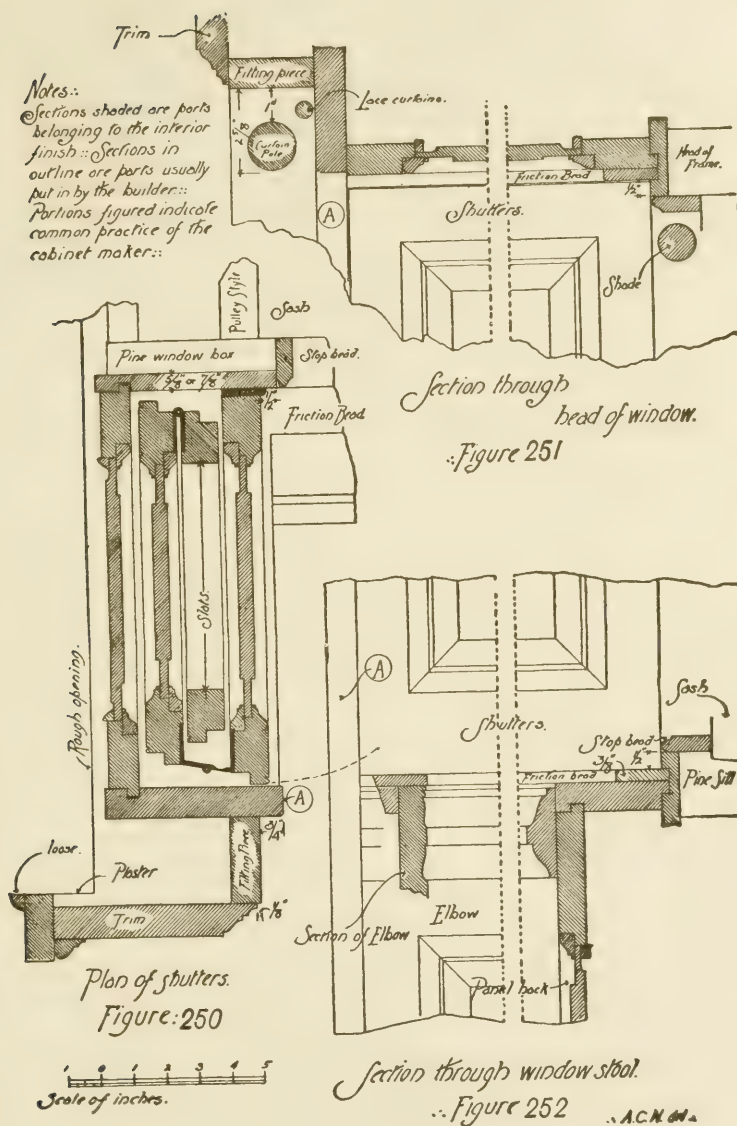 Trim
Notes::
Sections shaded are parts
belonging to the interior
finish :: Sections in
outline are parts usually
put in by the builder::
Portions figured indicate
common practice of the
cabinet maker::
Fitting piece
1"
2 5/8"
Curtain
Pole
Lace curtains.
A
Friction Bead
Head of
Frame.
1/2"
Shutters.
Shade
Section through
head of window.
.: Figure 251
Pulley Style
Sash
Pine window box
Stop bead.
5/8" or 7/8"
1/2"
Friction Bead
Slats.
Rough opening.
A
3/4"
Fitting Piece
loose.
Plaster
Trim
1/8"
Plan of shutters.
Figure: 250
A
Shutters.
Sash
Stop bead
3/8"
1/2"
Friction bead
Pine Sill
Elbow
Section of Elbow
Panel back
1 0 1 2 3 4 5
Scale of inches.
Section through window stool.
.: Figure 252